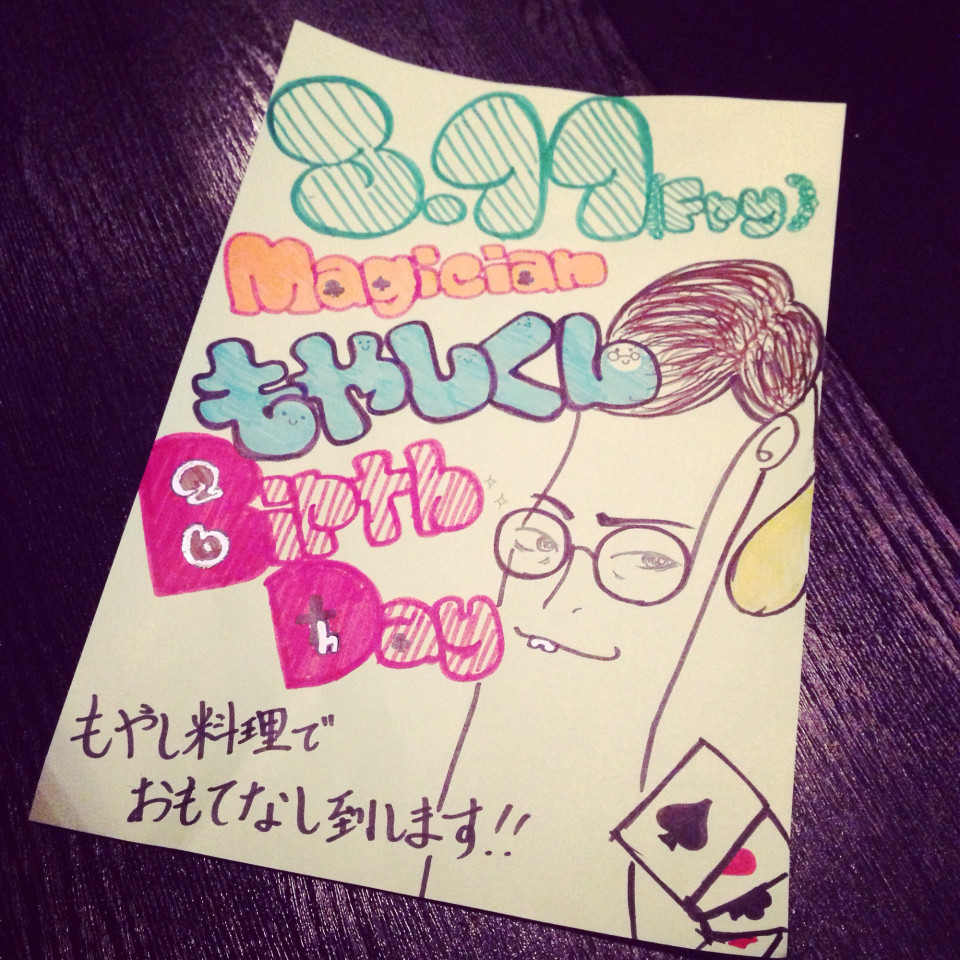 3.11 (Fry)
Magician
もやしくん
Birth
26
Day
th
もやし料理で
おもてなし到します!!